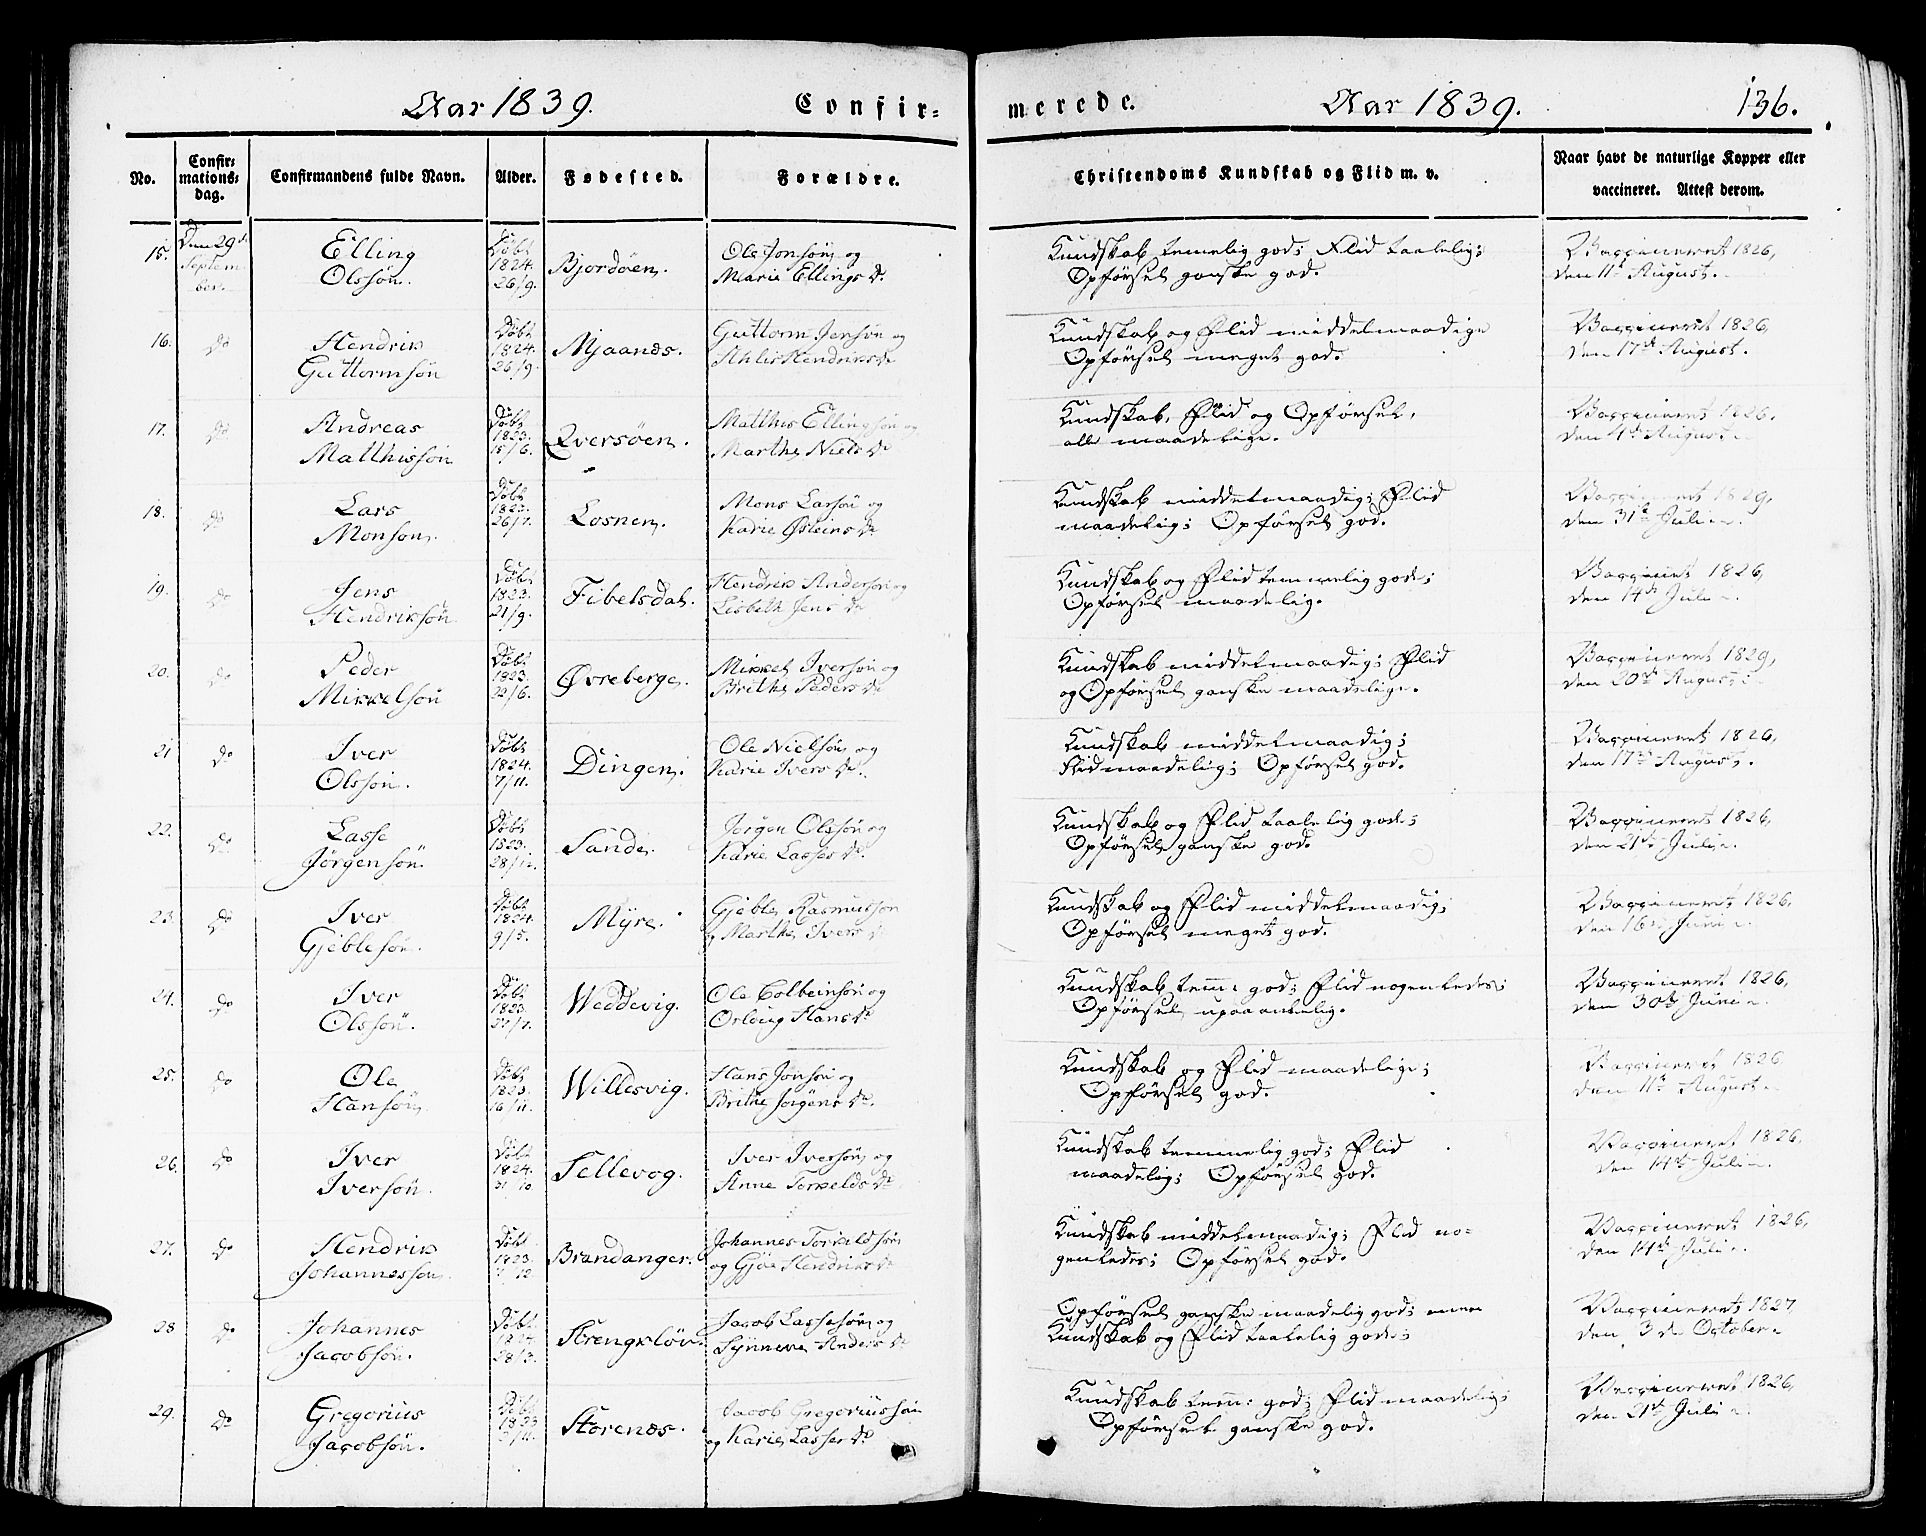 Aar 1839.
Confir=
merede.
Aar 1839.
136.
No.
Confir=
mations=
dag.
Confirmandens fulde Navn.
Alder.
Fødested.
Forældre.
Christendoms Kundskab og Flid m. v.
Naar havt de naturlige Kopper eller
vaccineret. Attest derom.
15.
Den 29de
Septem
ber.
Elling
Olssøn.
Døbt
1824.
26/9.
Bjordøen.
Ole Jonsøn og
Marie Ellings Dr.
Kundskab temelig god; Flid taalelig;
Opførsel ganske god.
Vaccineret 1826,
den 11te August.
16.
do
Hendrik
Guttormsøn
Døbt
1824.
26/9.
Mjaanes.
Guttorm Jensøn og
Hendriks Dr
Kundskab og Flid middelmaadige
Opførsel meget god.
Vaccineret 1826,
den 17de August.
17.
do
Andreas
Matthissøn
Døbt
1823.
15/6.
Qversøen.
Matthis Ellingsøn og
Marthe Niels Dr
Kundskab, Flid og Opførsel,
alle maadelige.
Vaccineret 1826.
den 4de August
18.
do
Lars
Monsøn.
Døbt
1823.
26/7.
Losnen.
Mons Larsøn og
Karie Østeins Dr
Kundskab middelmaadig; Flid
maadelig; Opførsel god.
Vaccineret 1829,
den 31te Juli
19.
do
Jens
Hendriksøn
Døbt
1823.
21/9.
Fibelsdal.
Hendrik Andersøn og
Lisbeth Jens Dr
Kundskab og Flid temmelig gode;
Opførsel maadelig.
Vaccinet 1826,
den 14de Juli
20.
do
Peder
Mikkelsøn
Døbt
1823.
22/6.
Øvreberge.
Mikkel Iversøn og
Brithe Peders Dr
Kundskab middelmaadig; Flid
og Opførsel ganske maadelige.
Vaccineret 1829,
den 20de August
21
do
Iver
Olssøn.
Døbt
1824.
7/11.
Dingen.
Ole Nielsøn og
Karie Ivers Dr.
Kundskab middelmaadig;
Flid maadelig; Opførsel god.
Vaccineret 1826,
den 17de August.
22.
do
Lasse
Jørgensøn
Døbt
1823.
28/12.
Sande.
Jørgen Olssøn og
Karie Lasses Dr.
Kundskab og Flid taalelig gode;
Opførsel ganske god.
Vaccineret 1826,
den 21de Juli.
23.
do
Iver
Gjeblesøn.
Døbt
1824
9/5.
Myre.
Gjeble Rasmussøn
og Marthe Ivers Dr
Kundskab og Flid middelmaadig;
Opførsel meget god.
Vaccineret 1826,
den 16de Juni
24.
do
Iver
Olssøn.
Døbt
1823.
27/7.
Weddevig.
Ole Colbeinsøn og
Orleug Hans Dr
Kundskab tem: god; Flid nogenledes;
Opførsel upaaankelig.
Vaccineret 1826,
den 30de Juni
25.
do
Ole
Hansøn
Døbt
1823.
16/11.
Willesvig.
Hans Jonsøn og
Brithe Jørgens Dr.
Kundskab og Flid maadelige;
Opførsel god.
Vaccineret 1826
den 11te August
26.
do
Iver
Iversøn.
Døbt
1824.
31/10.
Tellevog.
Iver Iversøn og
Anne Torkelds Dr
Kundskab temmelig god; Flid
maadelig; Opførsel god.
Vaccineret 1826,
den 14de Juli
27.
do
Hendrik
Johannessøn
Døbt
1823.
Brandanger.
Johannes Torkildsøn
og Gjøe Hendriks Dr
Kundskab middelmaadig; Flid no=
genledes; Opførsel god.
Vaccineret 1826,
den 14de Juli
28
do
Johannes
Jacobsøn.
Døbt
1824.
28/3.
Strengsløv.
Jacob Lassesøn og
Synneve Anders Dr
Opførsel ganske maadelig god; men
Kundskab og Flid taalelig gode;
Vaccineret 1827
den 3de October
29.
do
Gregorius
Jacobsøn.
Døbt
1823
Storenæs.
Jacob Gregoriussøn
og Karie Lasses Dr
Kundskab tem: god; Flid maadelig;
Opførsel ganske god.
Vaccineret 1826,
den 21de Juli